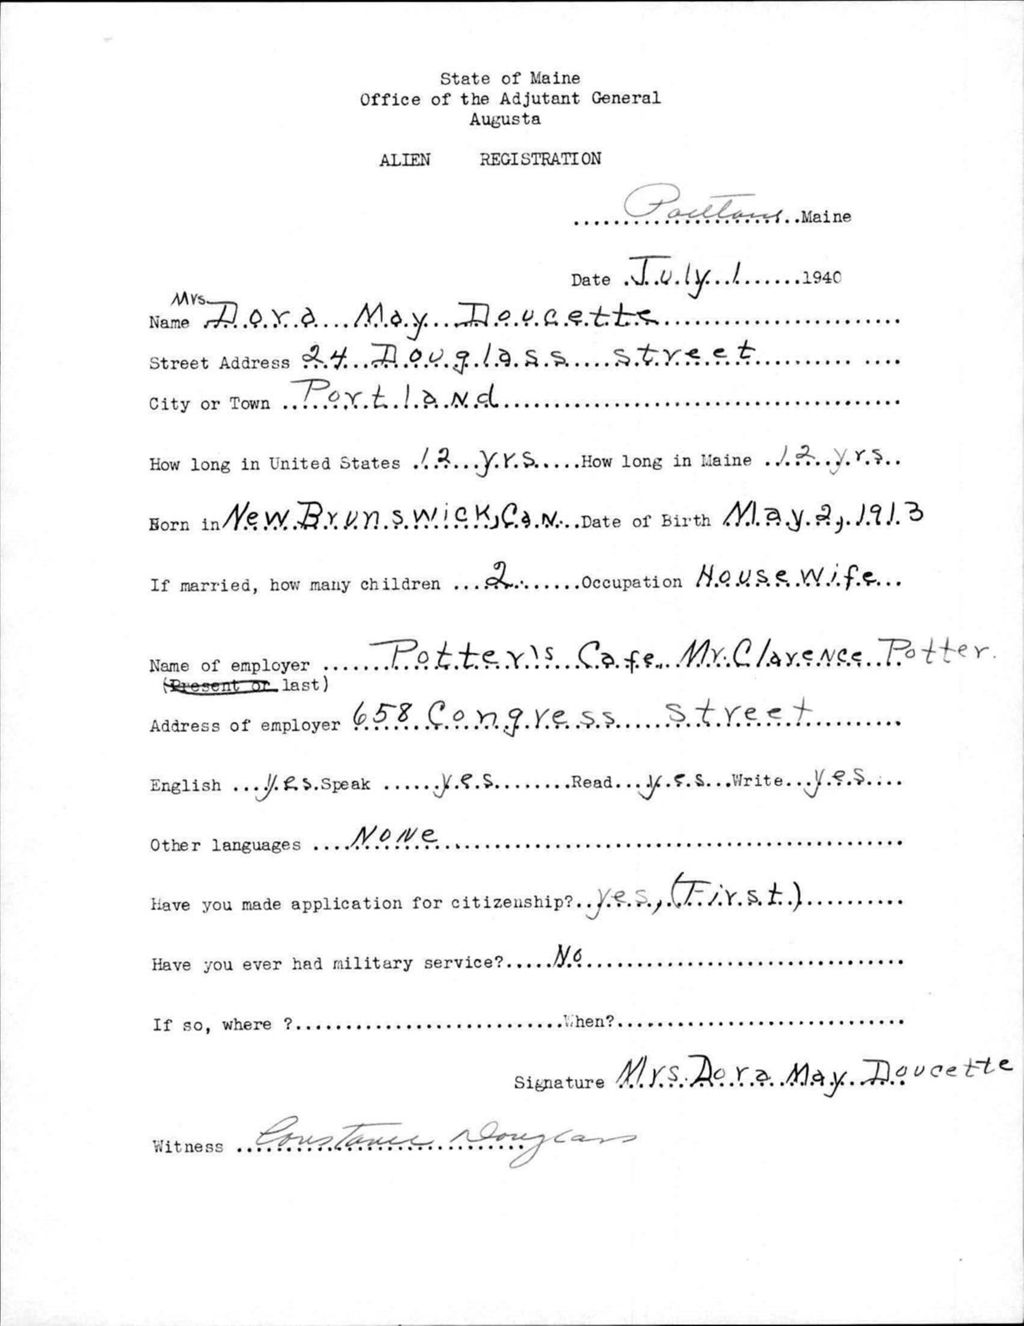 State of Maine
Office of the Adjutant General
Augusta
ALIEN REGISTRATION
Portland Maine
Date July 1 1940
Mrs.
Name Dora May Doucette
Street Address 24 Douglass street
City or Town Portland
How long in United States 12 yrs. How long in Maine 12 yrs.
Born in New Brunswick, Can. Date of Birth May 2, 1913
If married, how many children 2 Occupation Housewife
Name of employer Potter's Cafe. Mr. Clarence Potter.
(Present or last)
Address of employer 658 Congress street
English yes. Speak yes. Read yes. Write yes.
Other languages None
Have you made application for citizenship? yes, (First.)
Have you ever had military service? No
If so, where ? When?
Signature Mrs. Dora May Doucette
Witness Constance Douglass